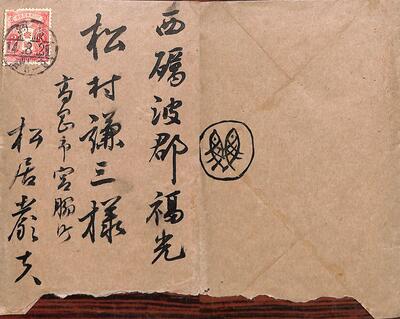 西礪波郡福光
松村謙三様
高岡市宮脇町
松居
14.8.25